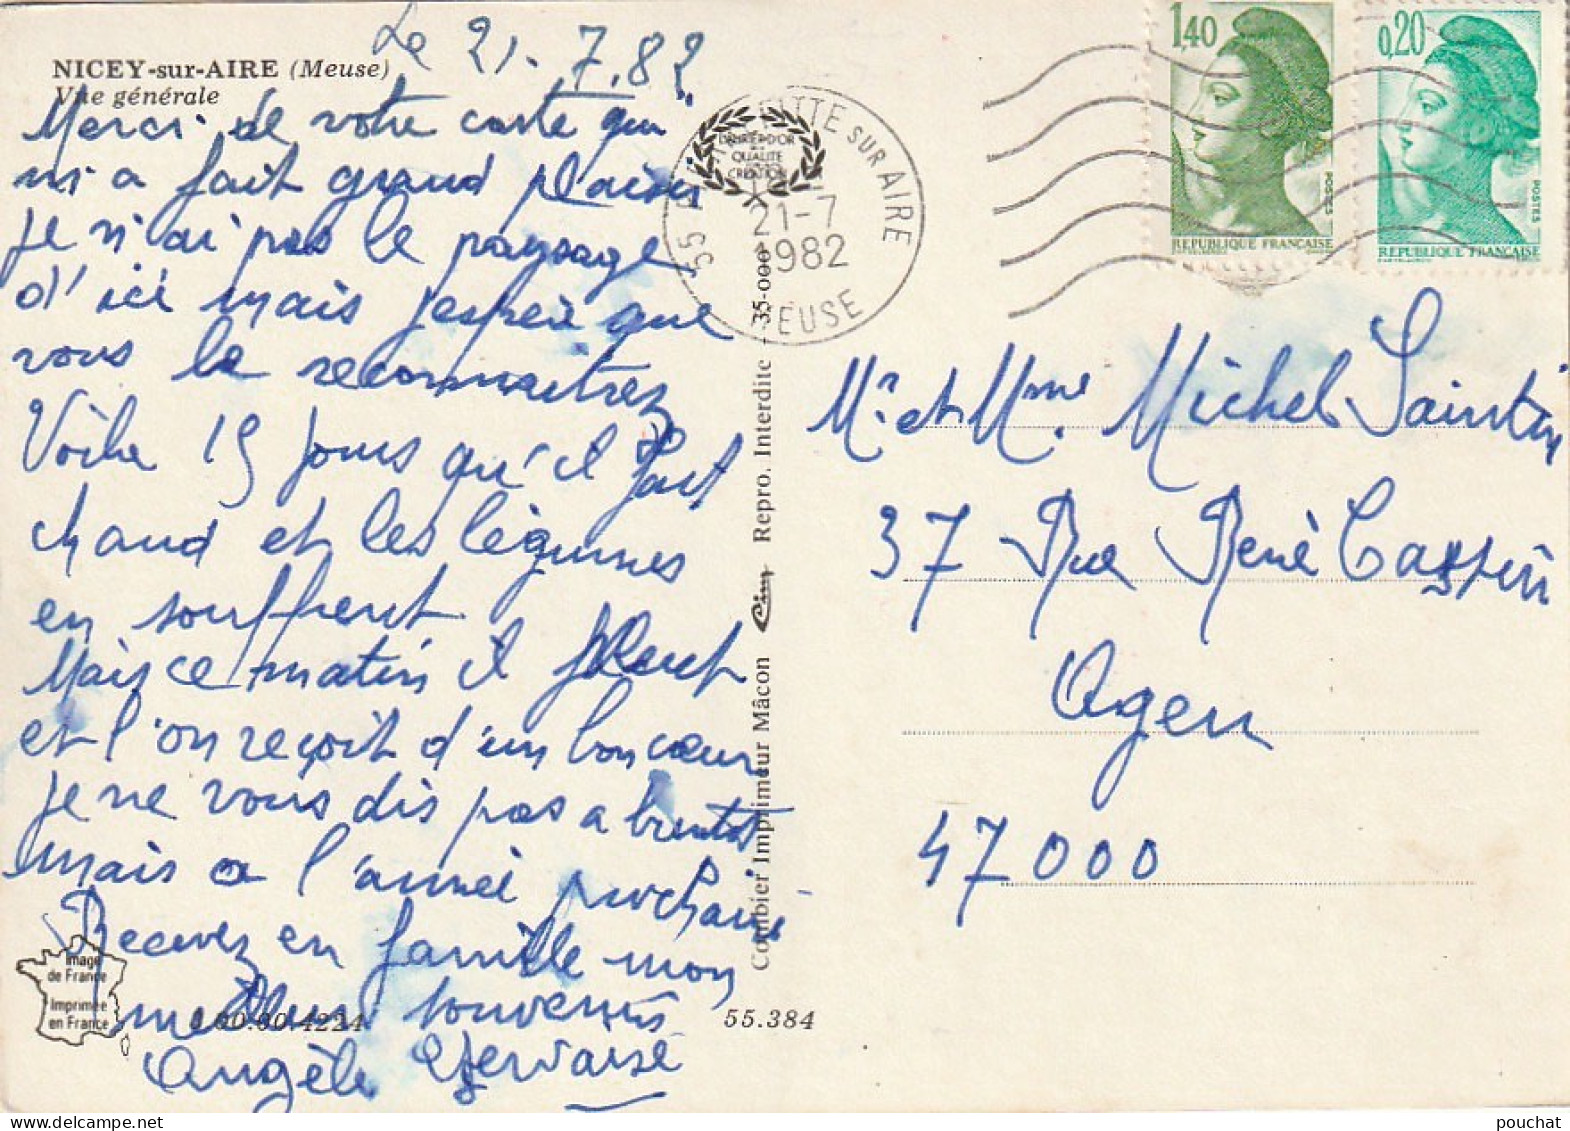 Le 21.7.82
NICEY-sur-AIRE (Meuse)
Vue générale
Merci de votre carte qui
m'a fait grand plaisir
je n'ai pas le paysage
d'ici mais j'espère que
vous le reconnaitrez
Voila 15 jours qu'il fait
chaud et les légumes
en souffrent
Mais ce matin il pleut
et l'on reçoit d'un bon cœur
je ne vous dis pas a bientot
mais a l'année prochaine
Recevez en famille mon
meilleur souvenir
Angèle Gervaise
Image
de France
Imprimée
en France
4224
55.384
Combier Imprimeur Mâcon Cim Repro. Interdite - 35-000
QUALITE
CREATION
SUR AIRE
21-7
1982
MEUSE
1,40
POSTES
REPUBLIQUE FRANÇAISE
0,20
POSTES
REPUBLIQUE FRANÇAISE
Mr et Mme Michel Saintin
37 Rue René Cassin
Agen
47000
pouchat